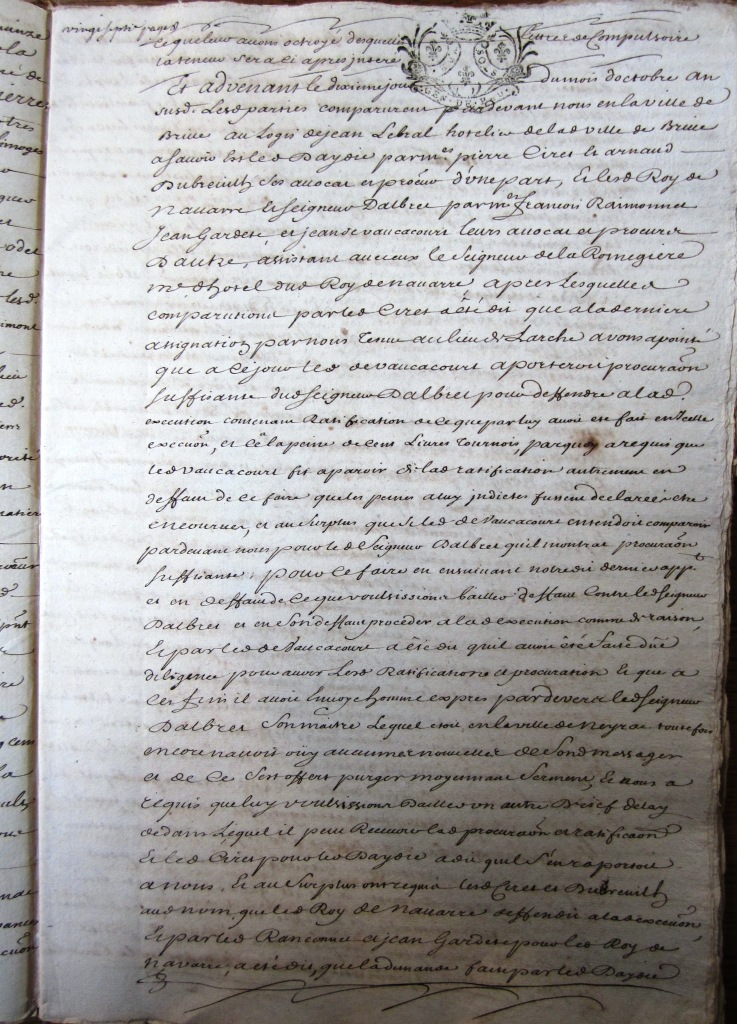 vingt septe pages
lequel leur avons octroyé desquelles lettres de Compulsoire
la teneur sera ci apres inseré
Et advenant le dixieme jour du mois doctobre an
susd. Lesd parties comparurent pardevant nous en la ville de
Brive au Logis de jean Lebral hotelier de lad ville de Brive
asavoir led Daydie par mes pierre Ciret et arnaud
Dubreuilh ses avocat et procur d'une part, Et led Roy de
Navarre et seigneur Dalbret par mes francois Raimonnet
Jean Gardete, et jean de vaucacourt leurs avocat et procureur
Dautre, assistant aveceux le seigneur de la Romegiere
me d'hotel dud Roy de navarre apres Lesquelles
comparutions par led Ciret a été dit que a la derniere
assignation par nous Tenue au lieu de Larche avons apointé
que a ce jour led de vaucacourt aporteroit procuraon
suffisante dud seigneur Dalbret pour deffendre a lad
execution contenant Ratification de ce que par luy avoit eté fait en Icelle
execuon, et ce a la peine de Cent Livres Tournois, parquoy a requis que
led vaucacourt fit aparoir de lad ratification autrement en
deffaut de ce faire que les peines a luy indictes fussent declarées etre
encourues, et au surplus que si led de Vaucacourt entendoit comparoir
pardevant nous pour led seigneur Dalbret quil montrat procuraon
suffisante pour ce faire en ensuivant notredit dernier app
et en deffaut de ce que voulsissions bailler deffaut Contre led seigneur
Dalbret et en son deffaut procéder a lad execution comme de raison,
Et par led de Vaucacourt a été dit quil avoit été faite düe
diligence pour avoir lesd Ratifications et procuration Et que a
ces fins il avoit Envoyé homme expres pardevers led seigneur
Dalbret son maitre Lequel etoit en la ville de Neyrac toutefois
encore n'avoit oüy aucunes nouvelles de sond messager
et de ce sest offert purger moyennant serment, Et nous a
requis que luy voulsissions Bailler un autre Brief delay
dedans Lequel il peut Recouvrer lad procuraon et ratificaon
Et led Ciret pour led Daydie a dit quil s'en raportoit
a nous, Et au surplus ont requis lesd Ciret et Dubreuilh
aud nom, que led Roy de Navarre deffendit a lad execuon,
Et par led Ranconnet et jean Gardete pour led Roy de
navarre, a eté dit, que la demande faite par led Daydie